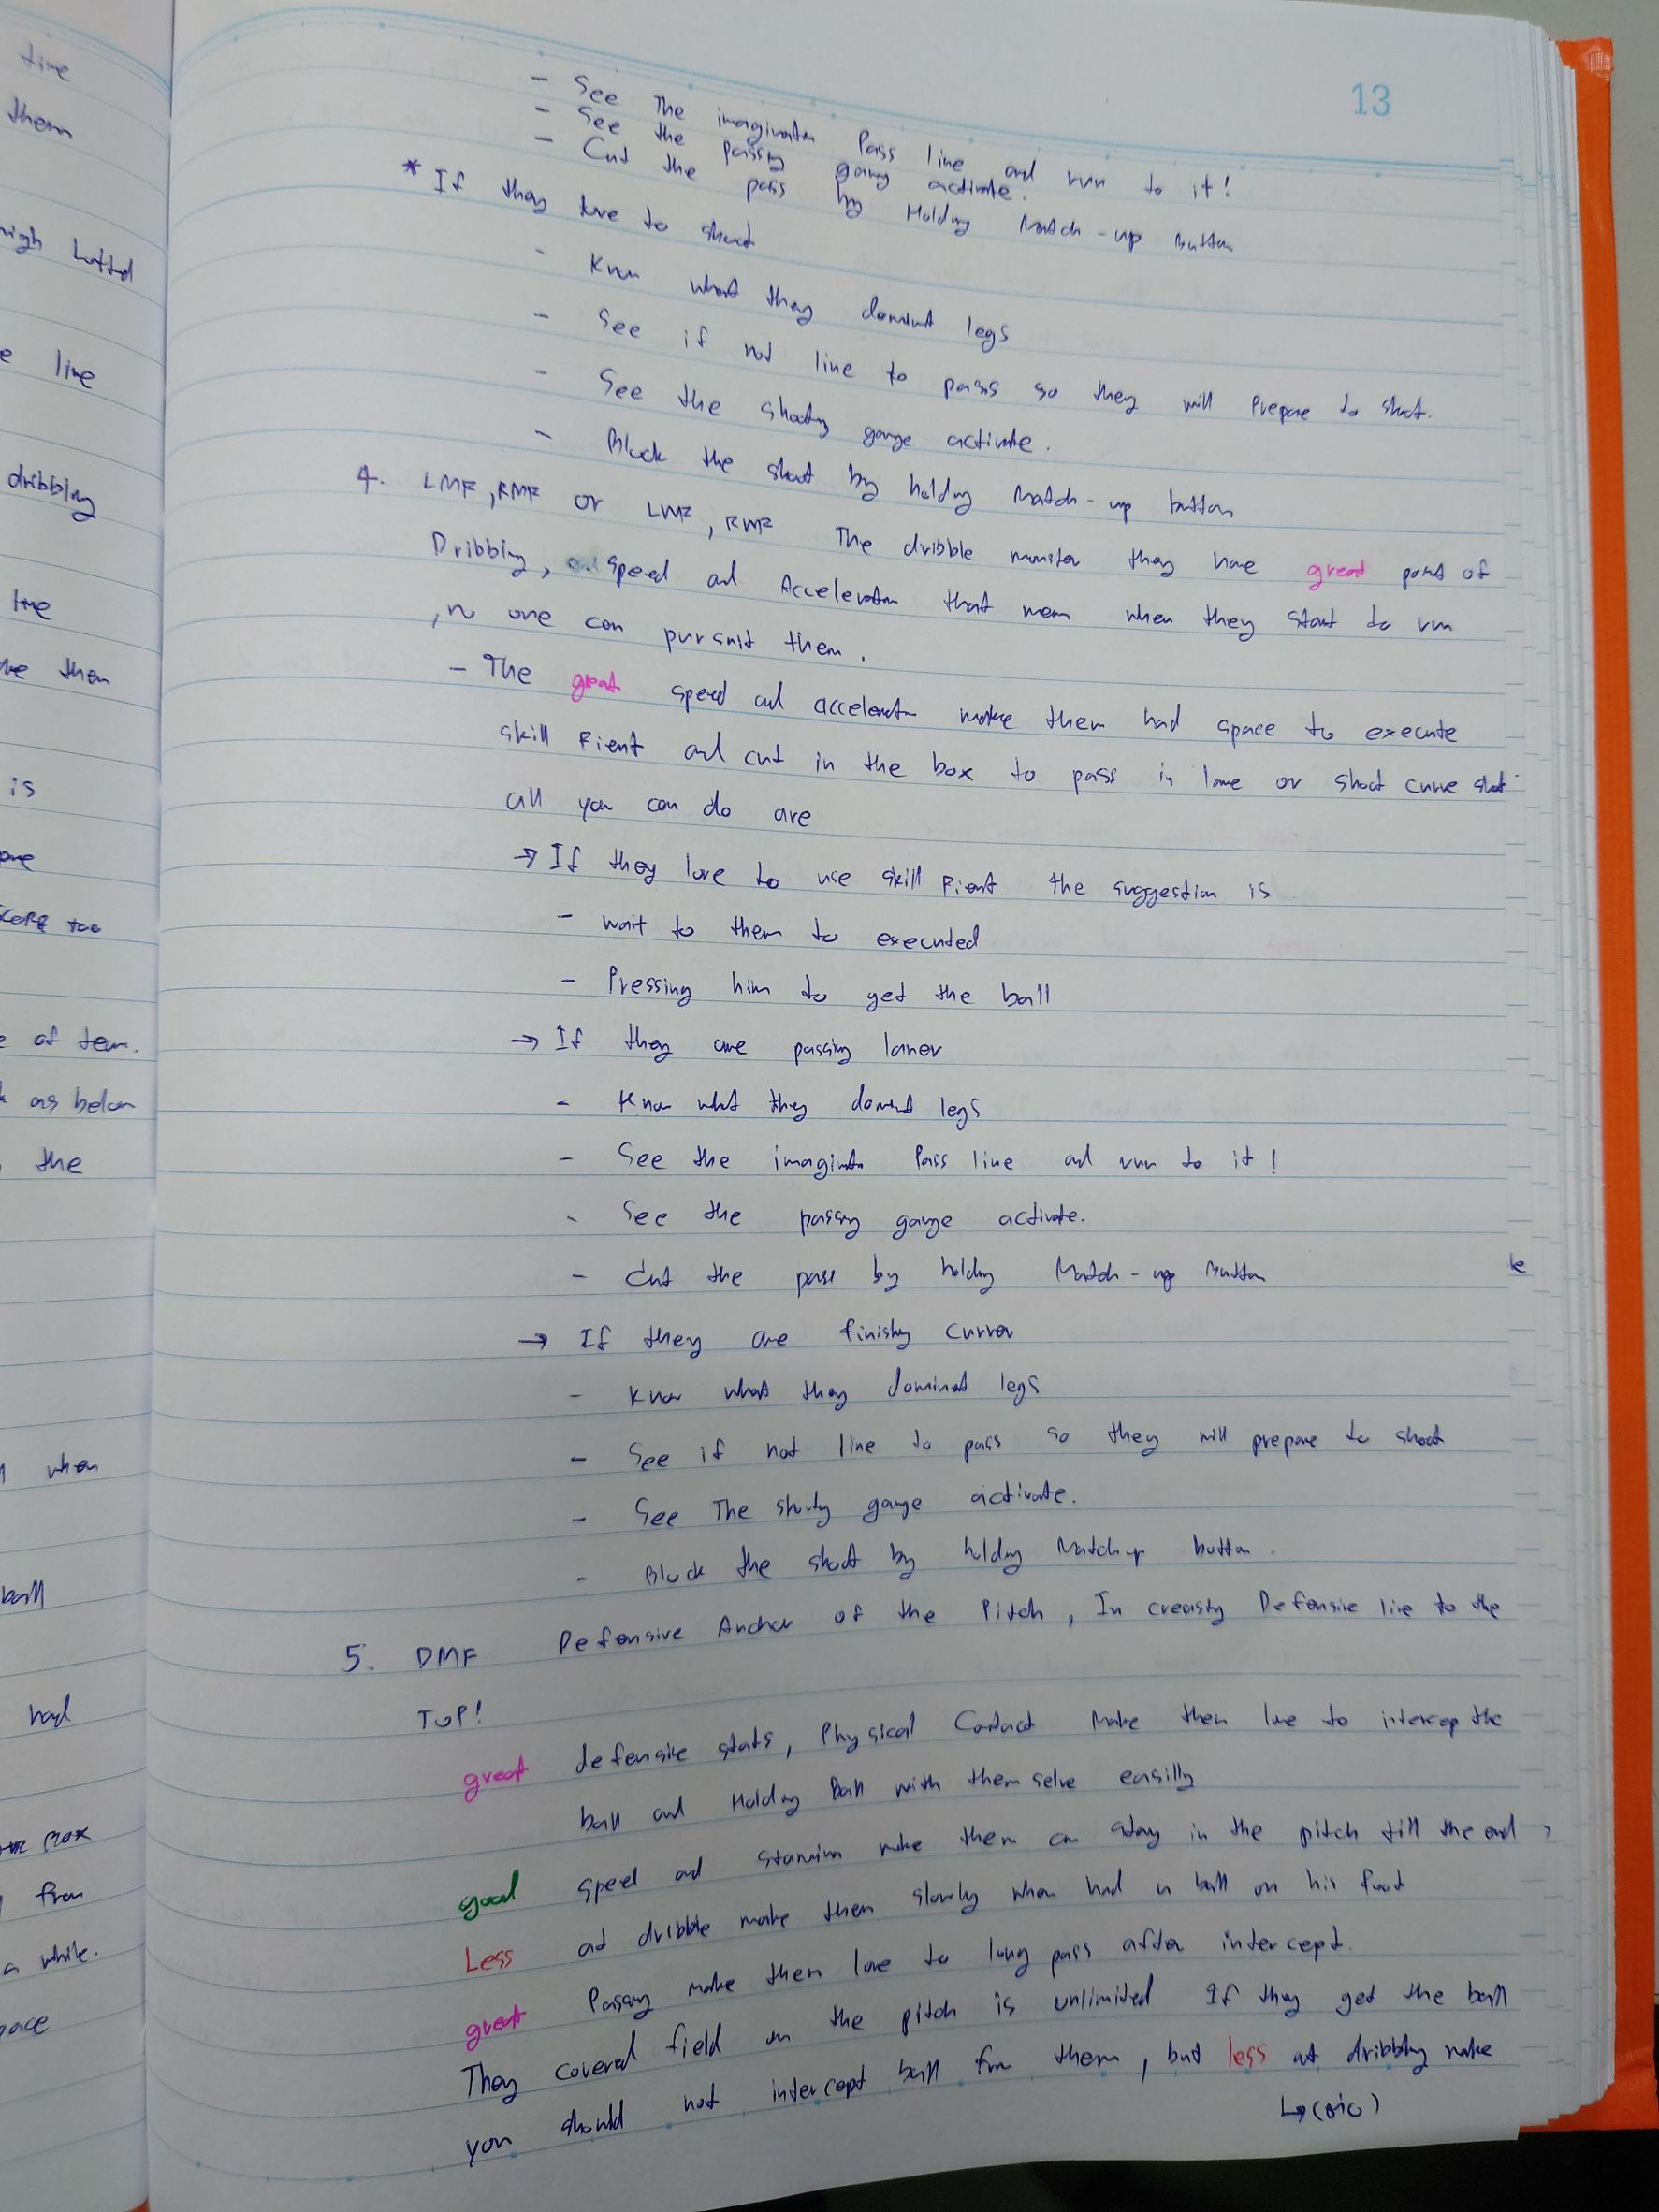 13
- See The imagination Pass line and run to it!
- See the passing gauge activate.
- Cut the pass by Holding Match-up Button
* If they love to shoot
- Know what they dominat legs
- See if not line to pass so they will Prepare to shoot.
- See the shooting gauge activate.
- Block the shoot by holding Match-up button
4. LMF, RMF or LWF, RWF The dribble monster they have great point of
Dribbling, speed and Acceleration that mean when they start to run
, no one can pursuit them.
- The great speed and acceleration make them had space to execute
skill Fient and cut in the box to pass in lane or shoot curve shot
all you can do are
→ If they love to use skill Fient the suggestion is
- wait to them to executed
- Pressing him to get the ball
→ If they are passing laner
- Know what they dominat legs
- See the imagination Pass line and run to it!
- See the passing gauge activate.
- Cut the pass by holding Match-up Button
→ If they are finishing curver
- Know what they dominat legs
- See if not line to pass so they will prepare to shoot
- See The shooting gauge activate.
- Block the shoot by holding Match-up button.
5. DMF Defensive Anchor of the Pitch, Increasing Defensive line to the
TOP!
great defensive stats, Physical Contact Make them love to intercep the
ball and Holding Ball with themselve easilly
good speed and stamina make them can stay in the pitch till the end,
Less at dribble make them slowly when had a ball on his foot
great Passing make them love to long pass after intercept.
They covered field on the pitch is unlimited If they get the ball
you should not intercept ball from them, but less at dribbling make
time
them
high
line
dribbling
line
them
is
of team.
as below
the
when
ball
had
from
a while.